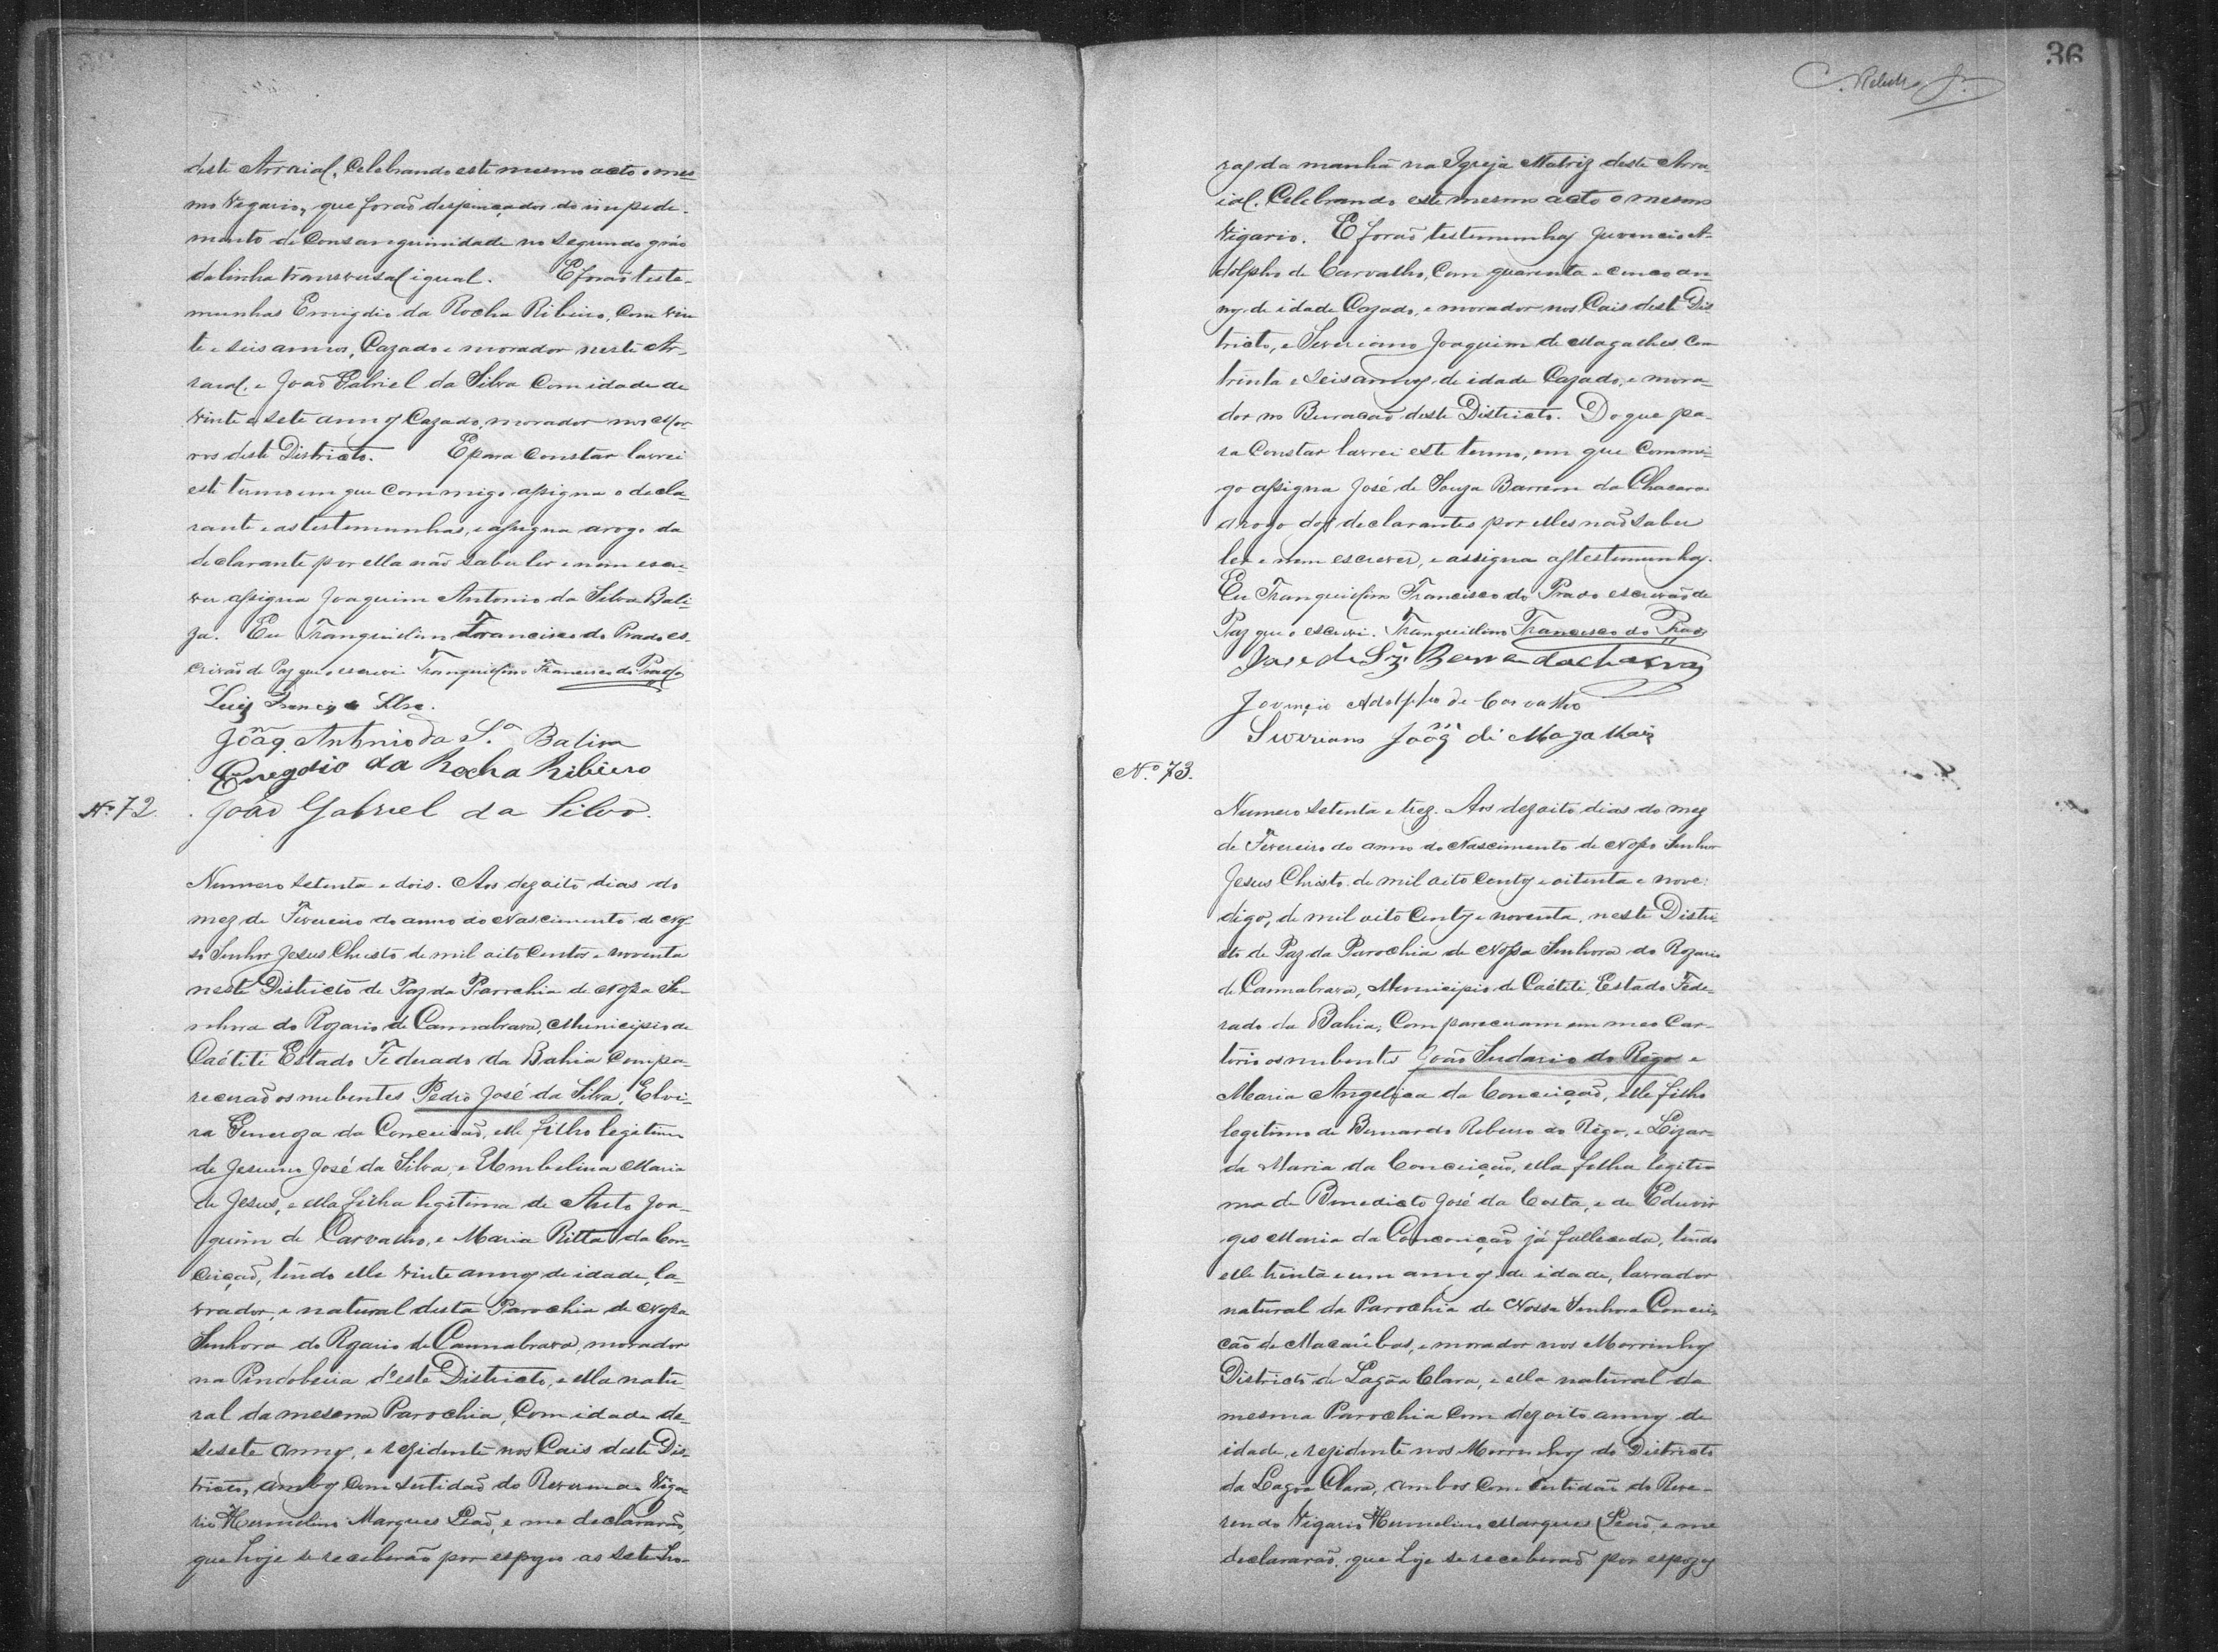 deste Arraial, Celebrando este mesmo acto o mes
mo Vigario, que forão despençados do impede-
mento de Consanguinidade no segundo gráo
da linha transversal igual. E forão teste-
munhas Emigdio da Rocha Ribeiro, Com vin
te e seis annos, Cazado e morador neste Ar-
raial, e João Gabriel da Silva Com idade de
vinte e sete annos Cazado, morador nos Mor
ros deste Districto. E para Constar lavrei
este termo em que Commigo assigna o decla-
rante e as testemunhas, e assigna arogo da
declarante por ella não saber ler e nem escre-
ver assigna Joaquim Antonio da Silva Bali-
za. Eu Tranquilino Francisco do Prado es-
crivão de Paz que o escrevi Tranquilino Francisco do Prado
Luiz Francisco da Silva.
Joaq.m Antonio da S.a Balisa
Emegdio da Rocha Ribeiro
Nº 72. João Gabriel da Silva.
Numero setenta e dois. Aos dezoito dias do
mez de Fevereiro do anno do Nascimento de Nos
so Senhor Jesus Christo de mil oito Centos e noventa
neste Districto de Paz da Parochia de Nossa Se-
nhora do Rozario de Cannabrava, Municipio de
Caétité Estado Federado da Bahia Compa-
recerão os nubentes Pedro José da Silva, Elvi-
ra Generoza da Conceicão, elle filho legitimo
de Jesuino José da Silva, e Umbelina Maria
de Jesus, e ella filha legitima de Joa-
quim de Carvalho, e Maria Ritta da Con-
ceiçaõ, tendo elle vinte annos de idade, la-
vrador, e natural desta Parochia de Nossa
Senhora do Rozario de Cannabrava, morador
na Pindobeira d'este Districto, e ella natu-
ral da mesma Parochia, Com idade de-
sesete annos, e rezidente nos Cais deste Dis-
tricto, ambos Com sertidaõ do Reverendo Viga
rio Hermelino Marques Leaõ, e me declararaõ,
que hoje se receberão por espozos as sete ho-
36
Ribeiro Jr.
ras da manhã na Igreja Matriz deste Arra-
ial. Celebrando este mesmo acto o mesmo
Vigario. E foraõ testemunhas Juvencio A-
dolpho de Carvalho, Com quarenta e cinco an
nos de idade Cazado, e morador nos Cais deste Dis
tricto, e Severiano Joaquim de Magalhes Com
trinta e seis annos de idade Cazado, e mora-
dor no Buracaõ deste Districto. Do que pa-
ra Constar lavrei este termo, em que Commi-
go assigna José de Souza Barrem da Chacara
arogo dos declarantes por elles naõ saber
ler e nem escrever, e assigna as testemunhas.
Eu Tranquilino Francisco do Prado escrivaõ de
Paz que o escrevi. Tranquilino Francisco do Prado
Jose de Sz.
Jovincio Adolpho de Carvalho
Severiano Joaq.m di Magalhais
Nº 73.
Numero setenta e trez. Aos dezoito dias do mez
de Fevereiro do anno do Nascimento de Nosso Senhor
Jesus Christo de mil oito Centos e oitenta e nove:
digo, de mil oito Centos e noventa, neste Distri-
cto de Paz da Parochia de Nossa Senhora do Rozario
de Cannabrava, Municipio de Caétité, Estado Fede-
rado da Bahia, Compareceram em meo Car-
torio os nubentes João Sudario do Rêgo e
Maria Angelica da Conceiçaõ, elle filho
legitimo de Bernardo Ribeiro do Rêgo, e Lizar-
da Maria da Conceiçaõ, ella filha legiti-
ma de Benedicto José da Costa, e de Eduvir
ges Maria da Conceiçaõ já fallecida, tendo
elle trinta e um annos de idade, lavrador
natural da Parochia de Nossa Senhora Concei-
cão de Macaúbas, e morador nos Morrinhos
Districto de Lagôa Clara, e ella natural da
mesma Parochia Com dezoito annos de
idade, e rezidente nos Morrinhos do Districto
da Lagôa Clara, ambos Com sertidão do Reve-
rendo Vigario Hermelino Marques Leaõ, e me
declararaõ, que hoje se receberaõ por espozos